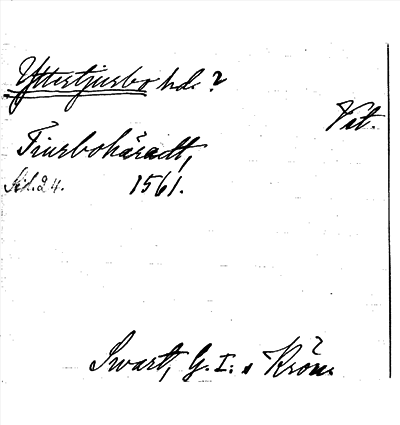 Yttertjurbo hd. ?
Vst.
Tiurbohäradt,
Sid. 24. 1561.
Swart, G. I:s Krön.